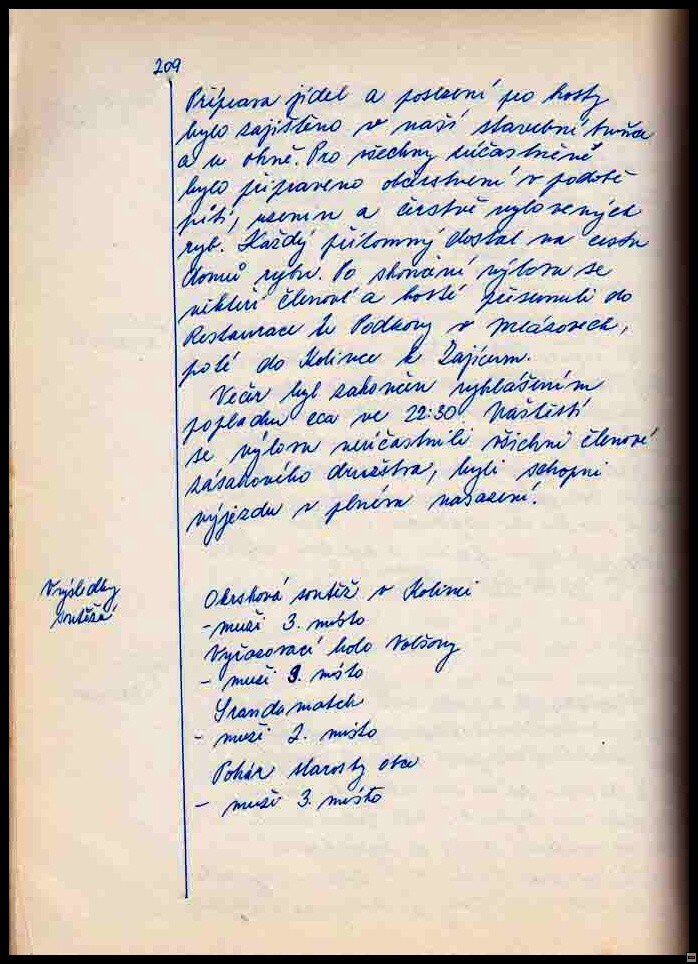 209
Příprava jídel a posezení pro hosty
bylo zajištěno v naší stavební buňce
a u ohně. Pro všechny zúčastněné
bylo připraveno občerstvení v podobě
pití, uzenin a čerstvě vylovených
ryb. Každý přítomný dostal na cestu
domů rybu. Po skončení výlovu se
někteří členové a hosté přesunuli do
Restaurace U Podkovy v Mlázovech,
poté do Kolince k Zajícům.
Večer byl zakončen vyhlášením
poplachu cca ve 22:30 Naštěstí
se výlovu neúčastnili všichni členové
zásahového družstva, byli schopni
výjezdu v plném nasazení.
Výsledky
soutěží
Okrsková soutěž v Kolinci
- muži 3. místo
Vyřazovací kolo Volšovy
- muži 9. místo
Srandamatch
- muži 2. místo
Pohár starosty obce
- muži 3. místo